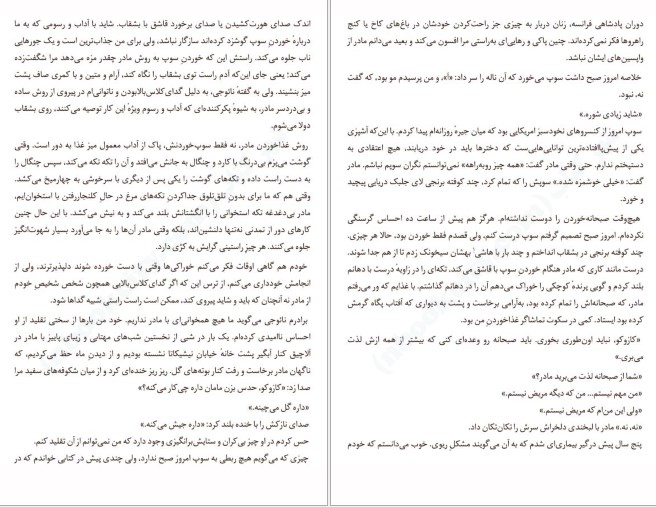 اندک صدای هورت‌کشیدن یا صدای برخورد قاشق با بشقاب. شاید با آداب و رسومی که به ما
دربارهٔ خوردنِ سوپ گوشزد کرده‌اند سازگار نباشد، ولی برای من جذاب‌ترین است و یک جورهایی
ناب جلوه می‌کند. راستش این که خوردنِ سوپ به روش مادر چقدر مزه می‌دهد مرا شگفت‌زده
می‌کند؛ یعنی جای این‌که آدم راست توی بشقاب را نگاه کند، آرام و متین و با کمری صاف پشت
میز بنشیند. ولی به گفتهٔ نائوجی، به دلیل گدای‌کلاس‌بالابودن و ناتوانی‌ام در پیروی از روش ساده
و بی‌دردسر مادر، به شیوهٔ پکرکننده‌ای که آداب و رسوم ویژهٔ این کار توصیه می‌کنند، روی بشقاب
دولا می‌شوم.
روش غذاخوردن مادر، نه فقط سوپ‌خوردنش، پاک از آداب معمول میز غذا به دور است. وقتی
گوشت می‌پزم بی‌درنگ با کارد و چنگال به جانش می‌افتد و آن را تکه تکه می‌کند، سپس چنگال را
به دست راست داده و تکه‌های گوشت را یکی پس از دیگری با سرخوشی به چهارمیخ می‌کشد.
وقتی هم که ما برای بدون تلق‌تلوق جداکردن تکه‌های مرغ در حالِ کلنجاررفتن با استخوان‌ایم،
مادر بی‌دغدغه تکه استخوانی را با انگشتانش بلند می‌کند و به نیش می‌کشد. با این حال چنین
کارهای دور از تمدنی نه‌تنها دلنشین‌اند، بلکه وقتی مادر آن‌ها را به جا می‌آورد بسیار شهوت‌انگیز
جلوه می‌کنند. هر چیز راستینی گرایش به کژی دارد.
خودم هم گاهی اوقات فکر می‌کنم خوراکی‌ها وقتی با دست خورده شوند دلپذیرترند، ولی از
انجامش خودداری می‌کنم، از ترس این که اگر گدای‌کلاس‌بالایی همچون شخص شخیصِ خودم
از مادر نه آنچنان که باید و شاید پیروی کند، ممکن است راست راستی شبیه گداها شود.
برادرم نائوجی می‌گوید ما هیچ همخوانی‌ای با مادر نداریم. خود من بارها از سختی تقلید از او
احساس ناامیدی کرده‌ام. یک بار در شبی از نخستین شب‌های مهتابی و زیبای پاییز با مادر در
آلاچیق کنار آبگیر پشت خانهٔ خیابان نیشیکاتا نشسته بودیم و از دیدن ماه حظ می‌کردیم، که
ناگهان مادر برخاست و رفت کنار بوته‌های گل. ریز ریز خنده‌ای کرد و از میان شکوفه‌های سفید مرا
صدا زد: «کازوکو، حدس بزن مامان داره چی‌کار می‌کنه؟»
«داره گل می‌چینه.»
صدای نازکش را با خنده بلند کرد: «داره جیش می‌کنه.»
حس کردم در او چیز بی‌کران و ستایش‌برانگیزی وجود دارد که من نمی‌توانم از آن تقلید کنم.
چیزی که می‌گویم هیچ ربطی به سوپ امروز صبح ندارد، ولی چندی پیش در کتابی خواندم که در
دوران پادشاهی فرانسه، زنان دربار به چیزی جز راحت‌کردن خودشان در باغ‌های کاخ یا کنج
راهروها فکر نمی‌کرده‌اند. چنین پاکی و رهایی‌ای به‌راستی مرا افسون می‌کند و بعید می‌دانم مادر از
واپسین‌های ایشان نباشد.
خلاصه امروز صبح داشت سوپ می‌خورد که آن ناله را سر داد: «آ»، و من پرسیدم مو بود، که گفت
نه، نبود.
«شاید زیادی شوره.»
سوپ امروز از کنسروهای نخودسبز امریکایی بود که میان جیرهٔ روزانه‌ام پیدا کردم. با این‌که آشپزی
یکی از پیش‌پاافتاده‌ترین توانایی‌هایی‌ست که دخترها باید در خود دریابند، هیچ اعتقادی به
دستپختم ندارم. حتی وقتی مادر گفت: «همه چیز روبه‌راهه» نمی‌توانستم نگران سوپم نباشم. مادر
گفت: «خیلی خوشمزه شده.» سوپش را که تمام کرد، چند کوفته برنجی لای جلبک دریایی پیچید
و خورد.
هیچ‌وقت صبحانه‌خوردن را دوست نداشته‌ام. هرگز هم پیش از ساعت ده احساس گرسنگی
نکرده‌ام. امروز صبح تصمیم گرفتم سوپ درست کنم، ولی قصدم فقط خوردن بود، حالا هر چیزی.
چند کوفته برنجی در بشقاب انداختم و چند بار با هاشی بهشان سیخونک زدم تا از هم جدا شوند.
درست مانند کاری که مادر هنگام خوردن سوپ با قاشق می‌کند، تکه‌ای را در زاویهٔ درست با دهانم
بلند کردم و گویی پرندهٔ کوچکی را خوراک می‌دهم آن را در دهانم گذاشتم. با غذایم که ور می‌رفتم
مادر، که صبحانه‌اش را تمام کرده بود، به‌آرامی برخاست و پشت به دیواری که آفتاب پگاه گرمش
کرده بود ایستاد. کمی در سکوت تماشاگر غذاخوردن من بود.
«کازوکو، نباید اون‌طوری بخوری. باید صبحانه رو وعده‌ای کنی که بیشتر از همه ازش لذت
می‌بری.»
«شما از صبحانه لذت می‌برید مادر؟»
«من مهم نیستم... من که دیگه مریض نیستم.»
«ولی این من‌ام که مریض نیستم.»
«نه، نه.» مادر با لبخندی دلخراش سرش را تکان‌تکان داد.
پنج سال پیش درگیر بیماری‌ای شدم که به آن می‌گویند مشکل ریوی. خوب می‌دانستم که خودم